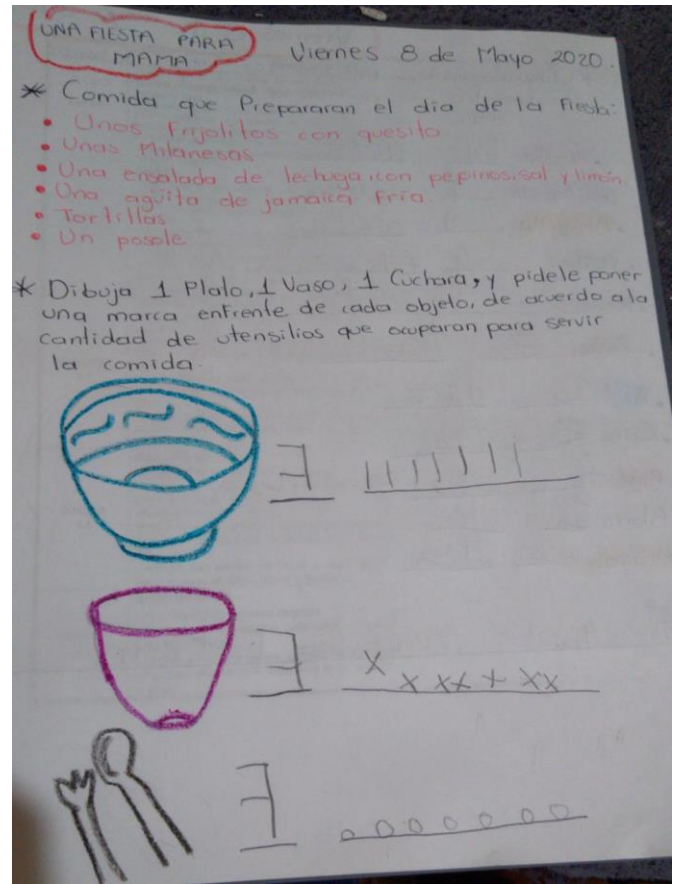 UNA FIESTA PARA
MAMA
Viernes 8 de Mayo 2020.
* Comida que Prepararan el dia de la Fiesta:
• Unos Frijolitos con quesito
• Unas Milanesas
• Una ensalada de lechuga,con pepinos,sal y limón
• Una agüita de jamaica Fría
• Tortillas
• Un posole
* Dibuja 1 Plato, 1 Vaso, 1 Cuchara, y pidele poner
una marca enfrente de cada objeto, de acuerdo a la
cantidad de utensilios que ocuparan para servir
la comida.
7 | | | | | | |
7 x x x x x x x
7 o o o o o o o